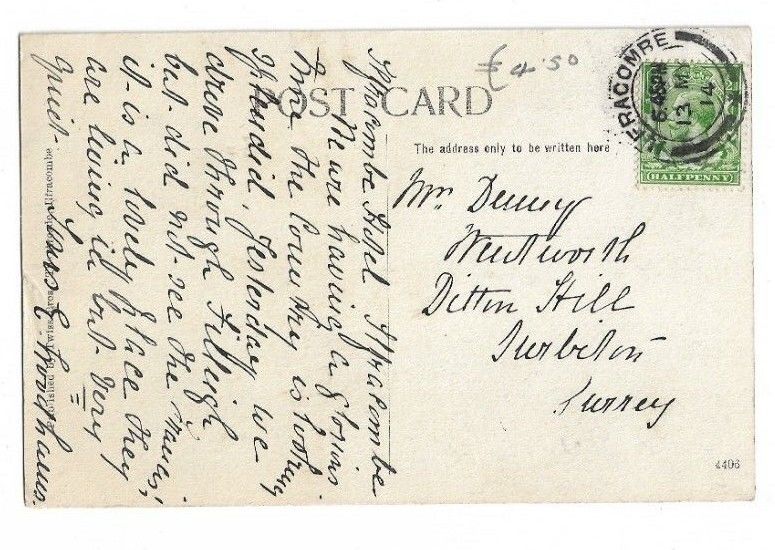 POST CARD
£4.50
The address only to be written here
ILFRACOMBE
5.45PM
13 M
14
HALFPENNY
Ilfracombe Hotel Ilfracombe
We are having a glorious
time the Country is looking
splendid, Yesterday we
drove through Filleigh
but did not see the
it is a lovely place they
are living in but very
quiet.
Mrs Denny
Wentworth
Ditton Hill
Surbiton
Surrey
Published by Twiss Bros Ilfracombe
4406